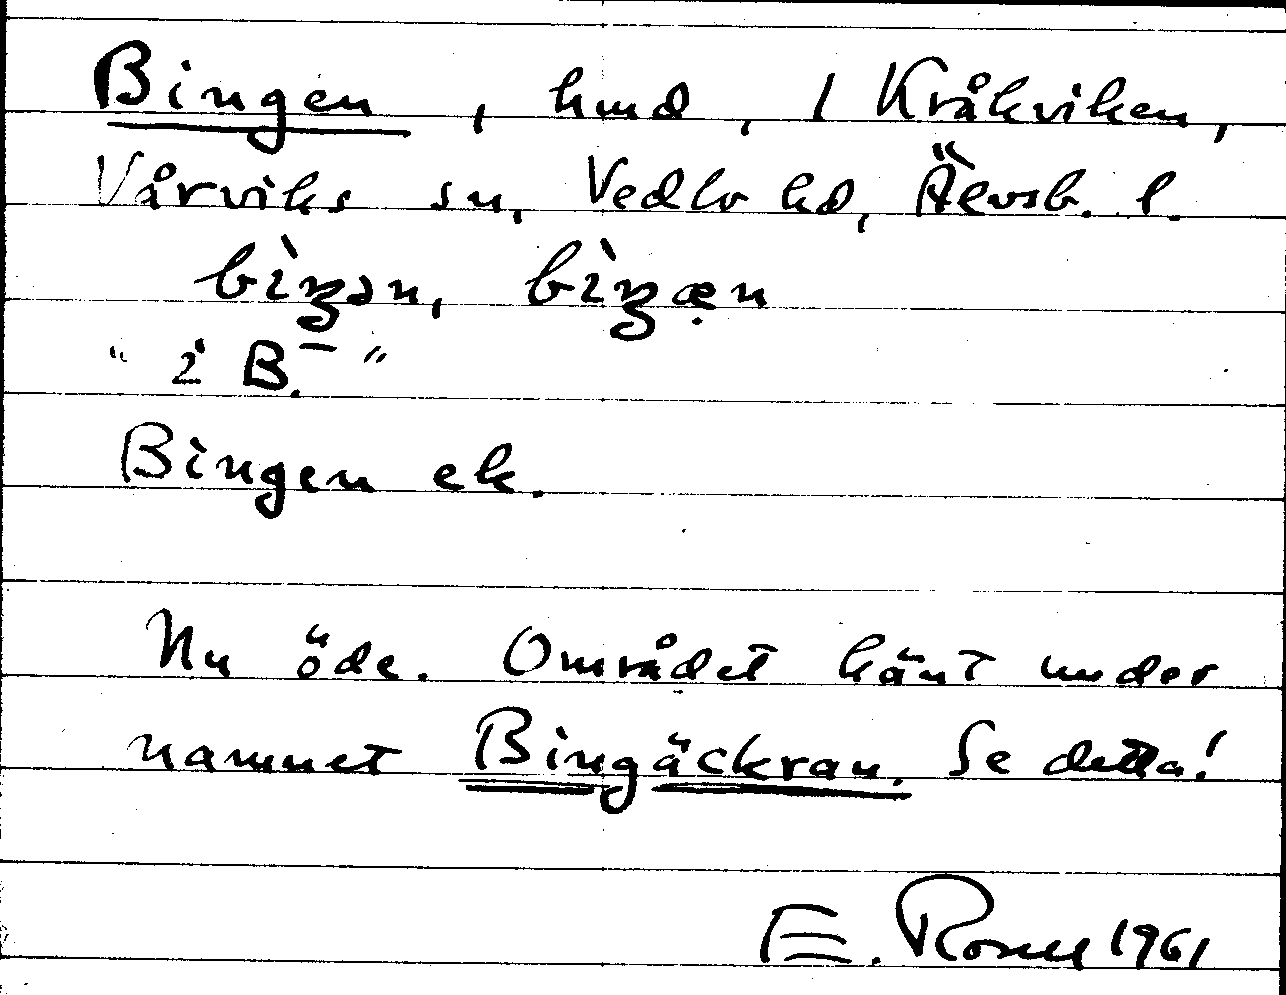 Bingen, hmd, 1 Kråkviken,
Vårviks sn, Vedbo hd, Älvsb. l.
bìŋən, bìŋæn
"i B.–"
Bingen ek.
Nu öde. Området känt under
namnet Bingäckran. Se detta!
E. Rosell 1961